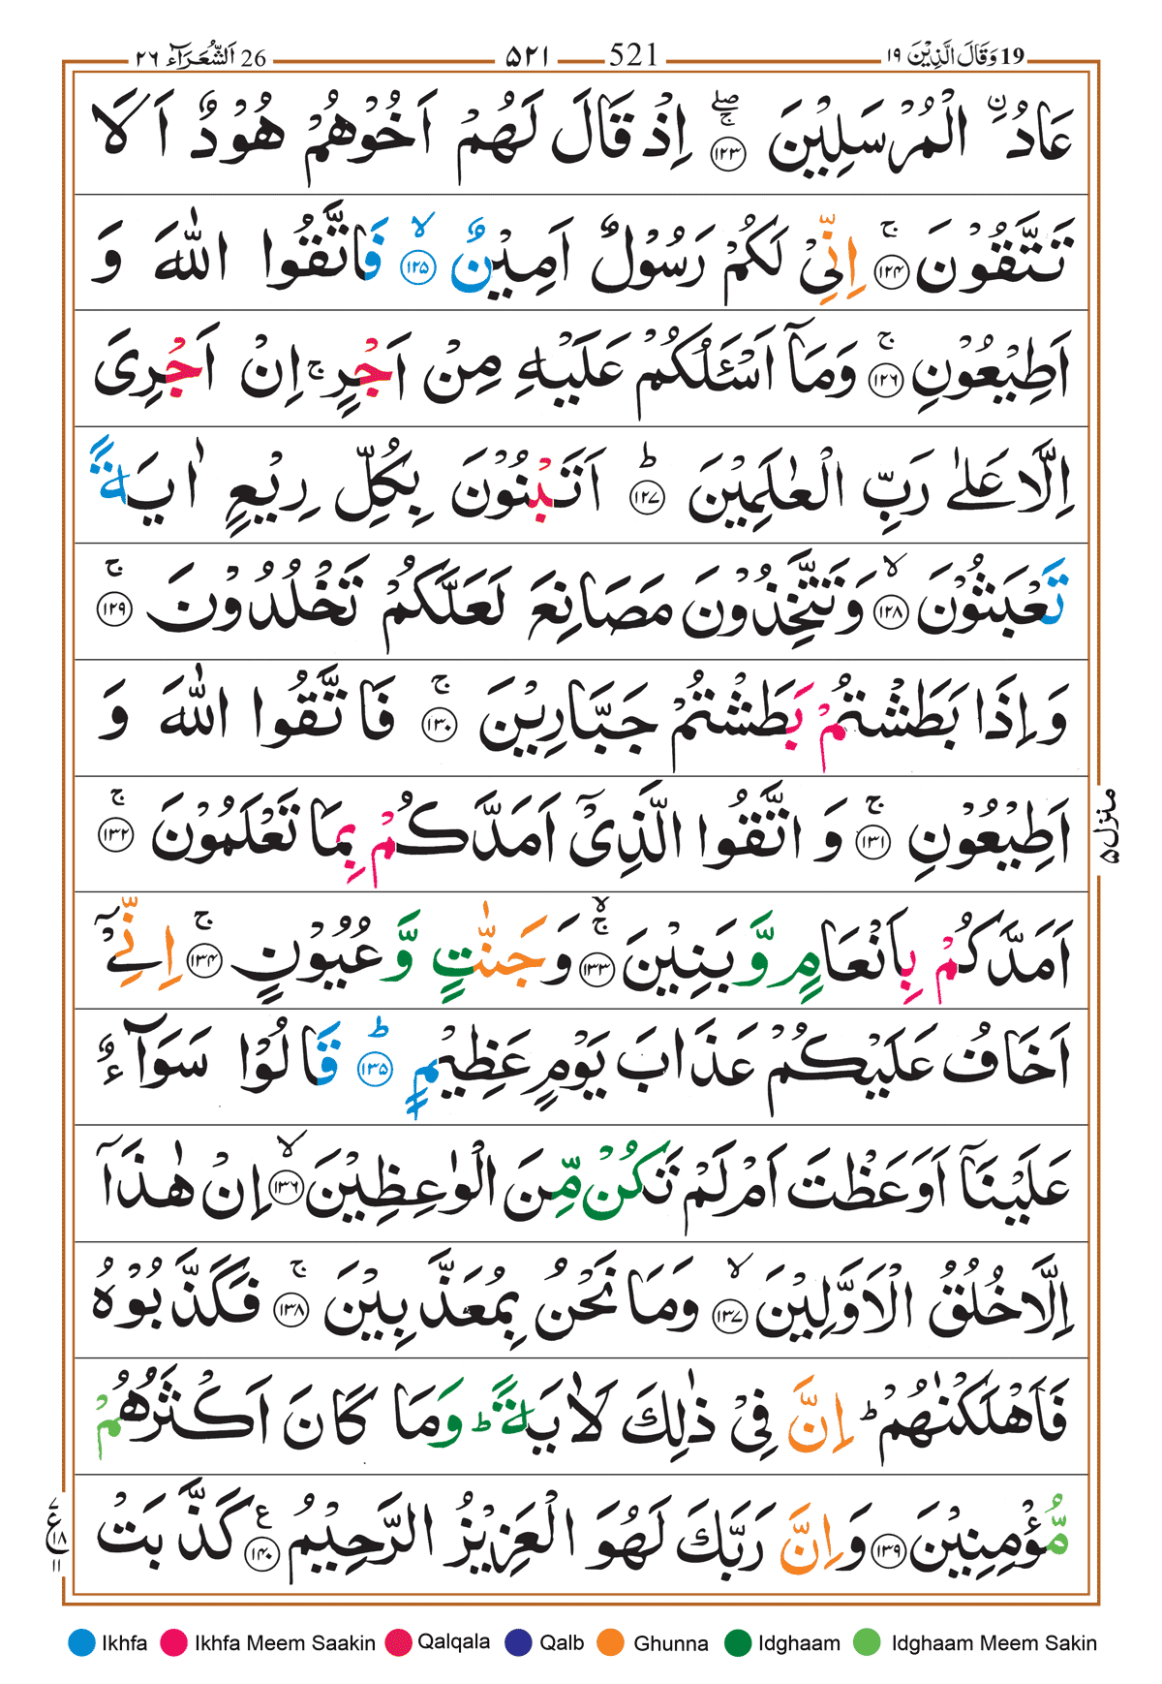 19 وَقَالَ الَّذِیْنَ ١٩ 521 ۵۲۱ 26 اَلشُّعَرَآء ٢٦
عَادُ ۨ الْمُرْسَلِیْنَ ۚۖ ﴿۱۲۳﴾ اِذْ قَالَ لَهُمْ اَخُوْهُمْ هُوْدٌ اَلَا
تَتَّقُوْنَ ۚ ﴿۱۲۴﴾ اِنِّیْ لَكُمْ رَسُوْلٌ اَمِیْنٌ ۙ ﴿۱۲۵﴾ فَاتَّقُوا اللّٰهَ وَ
اَطِیْعُوْنِ ۚ ﴿۱۲۶﴾ وَمَاۤ اَسْـَٔلُكُمْ عَلَیْهِ مِنْ اَجْرٍ ۚ اِنْ اَجْرِیَ
اِلَّا عَلٰی رَبِّ الْعٰلَمِیْنَ ؕ ﴿۱۲۷﴾ اَتَبْنُوْنَ بِكُلِّ رِیْعٍ اٰیَةً
تَعْبَثُوْنَ ۙ ﴿۱۲۸﴾ وَتَتَّخِذُوْنَ مَصَانِعَ لَعَلَّكُمْ تَخْلُدُوْنَ ۚ ﴿۱۲۹﴾
وَاِذَا بَطَشْتُمْ بَطَشْتُمْ جَبَّارِیْنَ ۚ ﴿۱۳۰﴾ فَاتَّقُوا اللّٰهَ وَ
اَطِیْعُوْنِ ۚ ﴿۱۳۱﴾ وَ اتَّقُوا الَّذِیْۤ اَمَدَّكُمْ بِمَا تَعْلَمُوْنَ ۚ ﴿۱۳۲﴾
اَمَدَّكُمْ بِاَنْعَامٍ وَّبَنِیْنَ ۚۙ ﴿۱۳۳﴾ وَجَنّٰتٍ وَّعُیُوْنٍ ۚ ﴿۱۳۴﴾ اِنِّیْۤ
اَخَافُ عَلَیْكُمْ عَذَابَ یَوْمٍ عَظِیْمٍ ؕ ﴿۱۳۵﴾ قَالُوْا سَوَآءٌ
عَلَیْنَاۤ اَوَعَظْتَ اَمْ لَمْ تَكُنْ مِّنَ الْوٰعِظِیْنَ ۙ ﴿۱۳۶﴾ اِنْ هٰذَاۤ
اِلَّا خُلُقُ الْاَوَّلِیْنَ ۙ ﴿۱۳۷﴾ وَمَا نَحْنُ بِمُعَذَّبِیْنَ ۚ ﴿۱۳۸﴾ فَكَذَّبُوْهُ
فَاَهْلَكْنٰهُمْ ؕ اِنَّ فِیْ ذٰلِكَ لَاٰیَةً ؕ وَمَا كَانَ اَكْثَرُهُمْ
مُّؤْمِنِیْنَ ﴿۱۳۹﴾ وَاِنَّ رَبَّكَ لَهُوَ الْعَزِیْزُ الرَّحِیْمُ ﴿۱۴۰﴾ ع كَذَّبَتْ
منزل۵
۷ ع ۱۸ ۱۱
Ikhfa Ikhfa Meem Saakin Qalqala Qalb Ghunna Idghaam Idghaam Meem Sakin